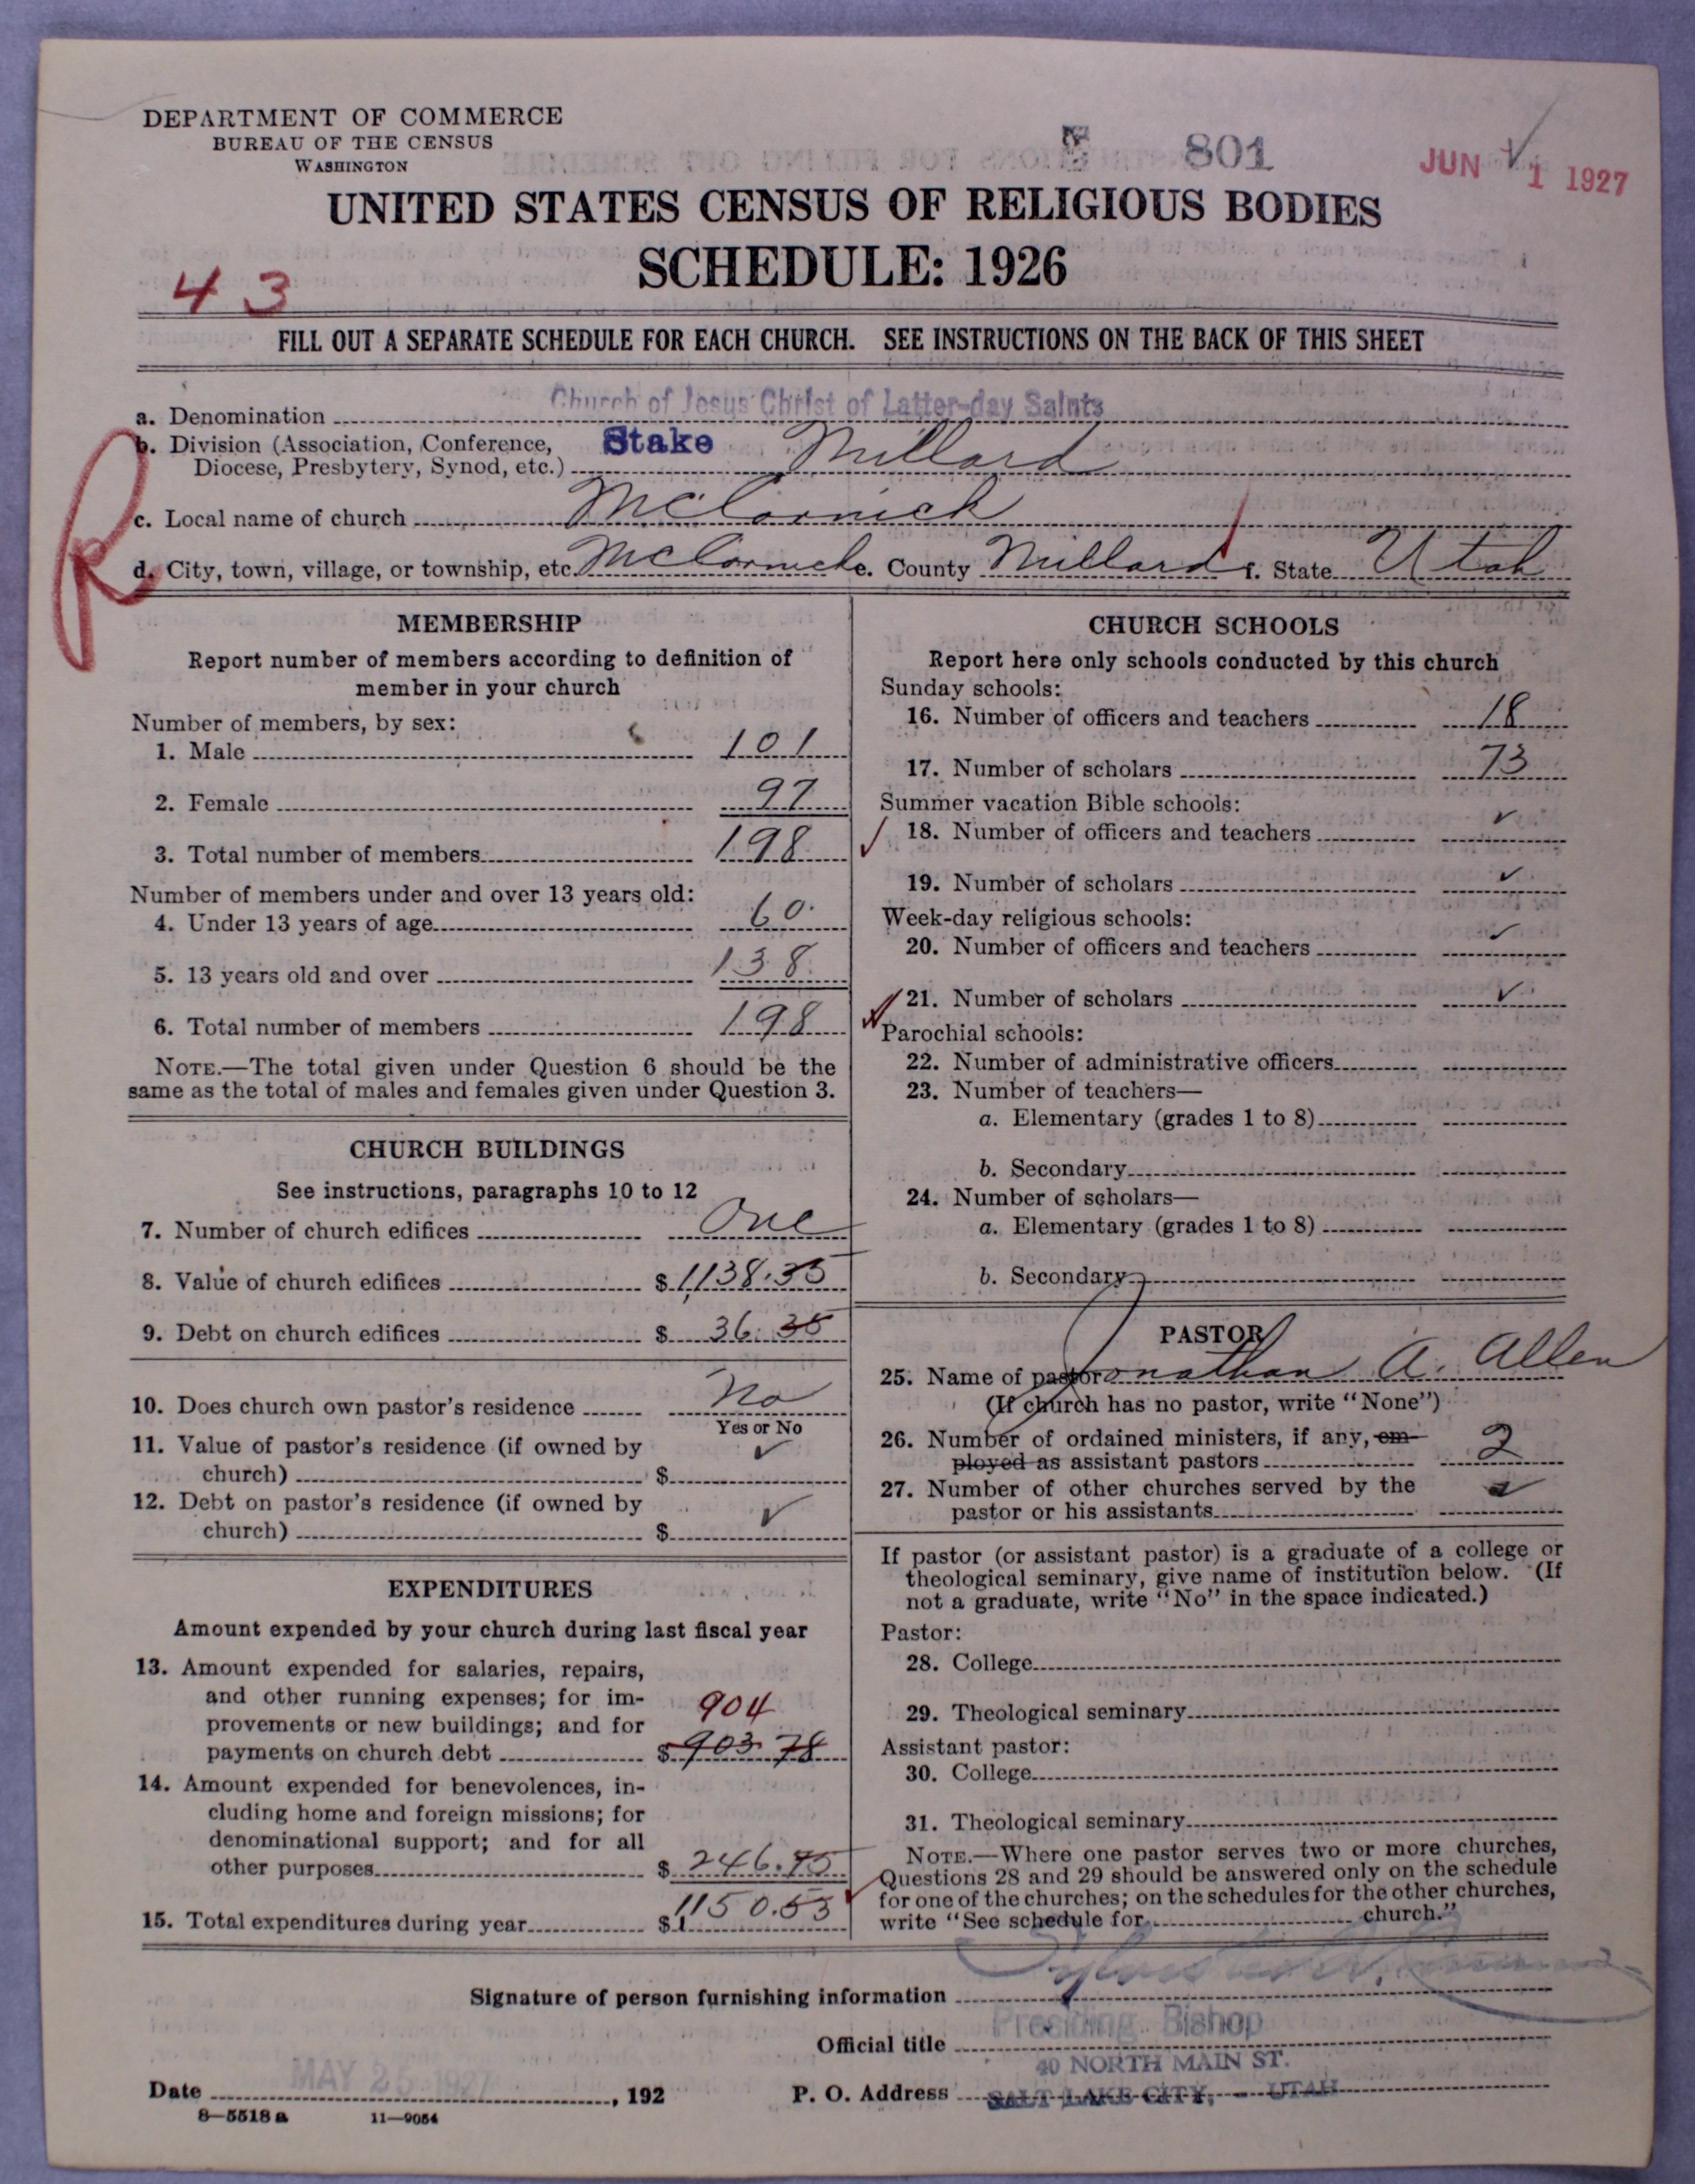 DEPARTMENT OF COMMERCE
BUREAU OF THE CENSUS
WASHINGTON
801
JUN 1 1927
UNITED STATES CENSUS OF RELIGIOUS BODIES
SCHEDULE: 1926
43
FILL OUT A SEPARATE SCHEDULE FOR EACH CHURCH. SEE INSTRUCTIONS ON THE BACK OF THIS SHEET
a. Denomination Church of Jesus Christ of Latter-day Saints
b. Division (Association, Conference, Stake Millard
Diocese, Presbytery, Synod, etc.)
R
c. Local name of church McCornick
d. City, town, village, or township, etc. McCornick e. County Millard f. State Utah
MEMBERSHIP
Report number of members according to definition of
member in your church
Number of members, by sex:
1. Male 101
2. Female 97
3. Total number of members 198
Number of members under and over 13 years old:
4. Under 13 years of age 60
5. 13 years old and over 138
6. Total number of members 198
NOTE.—The total given under Question 6 should be the
same as the total of males and females given under Question 3.
CHURCH BUILDINGS
See instructions, paragraphs 10 to 12
7. Number of church edifices One
8. Value of church edifices $1,138.35
9. Debt on church edifices $ 36.35
10. Does church own pastor's residence No
Yes or No
11. Value of pastor's residence (if owned by
church) $ ✓
12. Debt on pastor's residence (if owned by
church) $ ✓
EXPENDITURES
Amount expended by your church during last fiscal year
13. Amount expended for salaries, repairs,
and other running expenses; for im-
provements or new buildings; and for 904
payments on church debt $ 903.78
14. Amount expended for benevolences, in-
cluding home and foreign missions; for
denominational support; and for all
other purposes $ 246.75
15. Total expenditures during year $ 1150.53
CHURCH SCHOOLS
Report here only schools conducted by this church
Sunday schools:
16. Number of officers and teachers 18
17. Number of scholars 73
Summer vacation Bible schools:
18. Number of officers and teachers ✓
19. Number of scholars ✓
Week-day religious schools:
20. Number of officers and teachers ✓
21. Number of scholars ✓
Parochial schools:
22. Number of administrative officers
23. Number of teachers—
a. Elementary (grades 1 to 8)
b. Secondary
24. Number of scholars—
a. Elementary (grades 1 to 8)
b. Secondary
PASTOR
25. Name of pastor Jonathan A. Allen
(If church has no pastor, write "None")
26. Number of ordained ministers, if any, em-
ployed as assistant pastors 2
27. Number of other churches served by the
pastor or his assistants ✓
If pastor (or assistant pastor) is a graduate of a college or
theological seminary, give name of institution below. (If
not a graduate, write "No" in the space indicated.)
Pastor:
28. College
29. Theological seminary
Assistant pastor:
30. College
31. Theological seminary
NOTE.—Where one pastor serves two or more churches,
Questions 28 and 29 should be answered only on the schedule
for one of the churches; on the schedules for the other churches,
write "See schedule for church."
Signature of person furnishing information
Official title Presiding Bishop
40 NORTH MAIN ST.
Date MAY 25 1927, 192 P. O. Address SALT LAKE CITY, - UTAH
8—5518a 11—9054